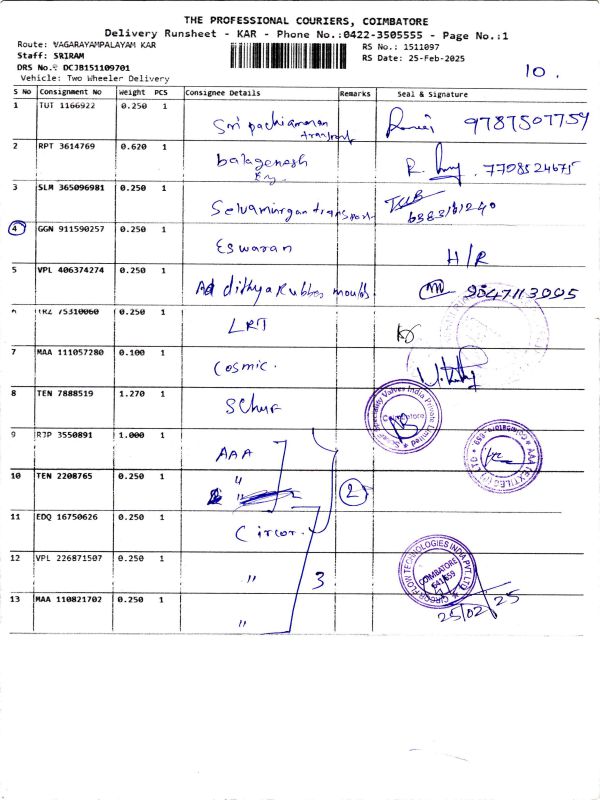 THE PROFESSIONAL COURIERS, COIMBATORE
Delivery Runsheet - KAR - Phone No.:0422-3505555 - Page No.:1
Route: VAGARAYAMPALAYAM KAR
RS No.: 1511097
Staff: SRIRAM
RS Date: 25-Feb-2025
DRS No.: DCJB151109701
Vehicle: Two Wheeler Delivery
10.
S No Consignment No Weight PCS Consignee Details Remarks Seal & Signature
1 TUT 1166922 0.250 1 Sri pachiamman transport 9787507759
2 RPT 3614769 0.620 1 balaganesh 7708524675
3 SLM 365096981 0.250 1 Selvamurgan transport
4 GGN 911590257 0.250 1 Eswaran H/R
5 VPL 406374274 0.250 1 Ad dithya Rubber moulds
75310060 0.250 1 LRT
7 MAA 111057280 0.100 1 Cosmic.
8 TEN 7888519 1.270 1
Speciality Valves India Private Limited
Coimbatore
9 RJP 3550891 1.000 1 AAA
AAA TEXTILES (P) LTD
10 TEN 2208765 0.250 1 "
2
11 EDQ 16750626 0.250 1 Circor.
12 VPL 226871507 0.250 1 " 3
CIRCOR FLOW TECHNOLOGIES INDIA PVT. LTD.
COIMBATORE
641 659
25/02/25
13 MAA 110821702 0.250 1 "